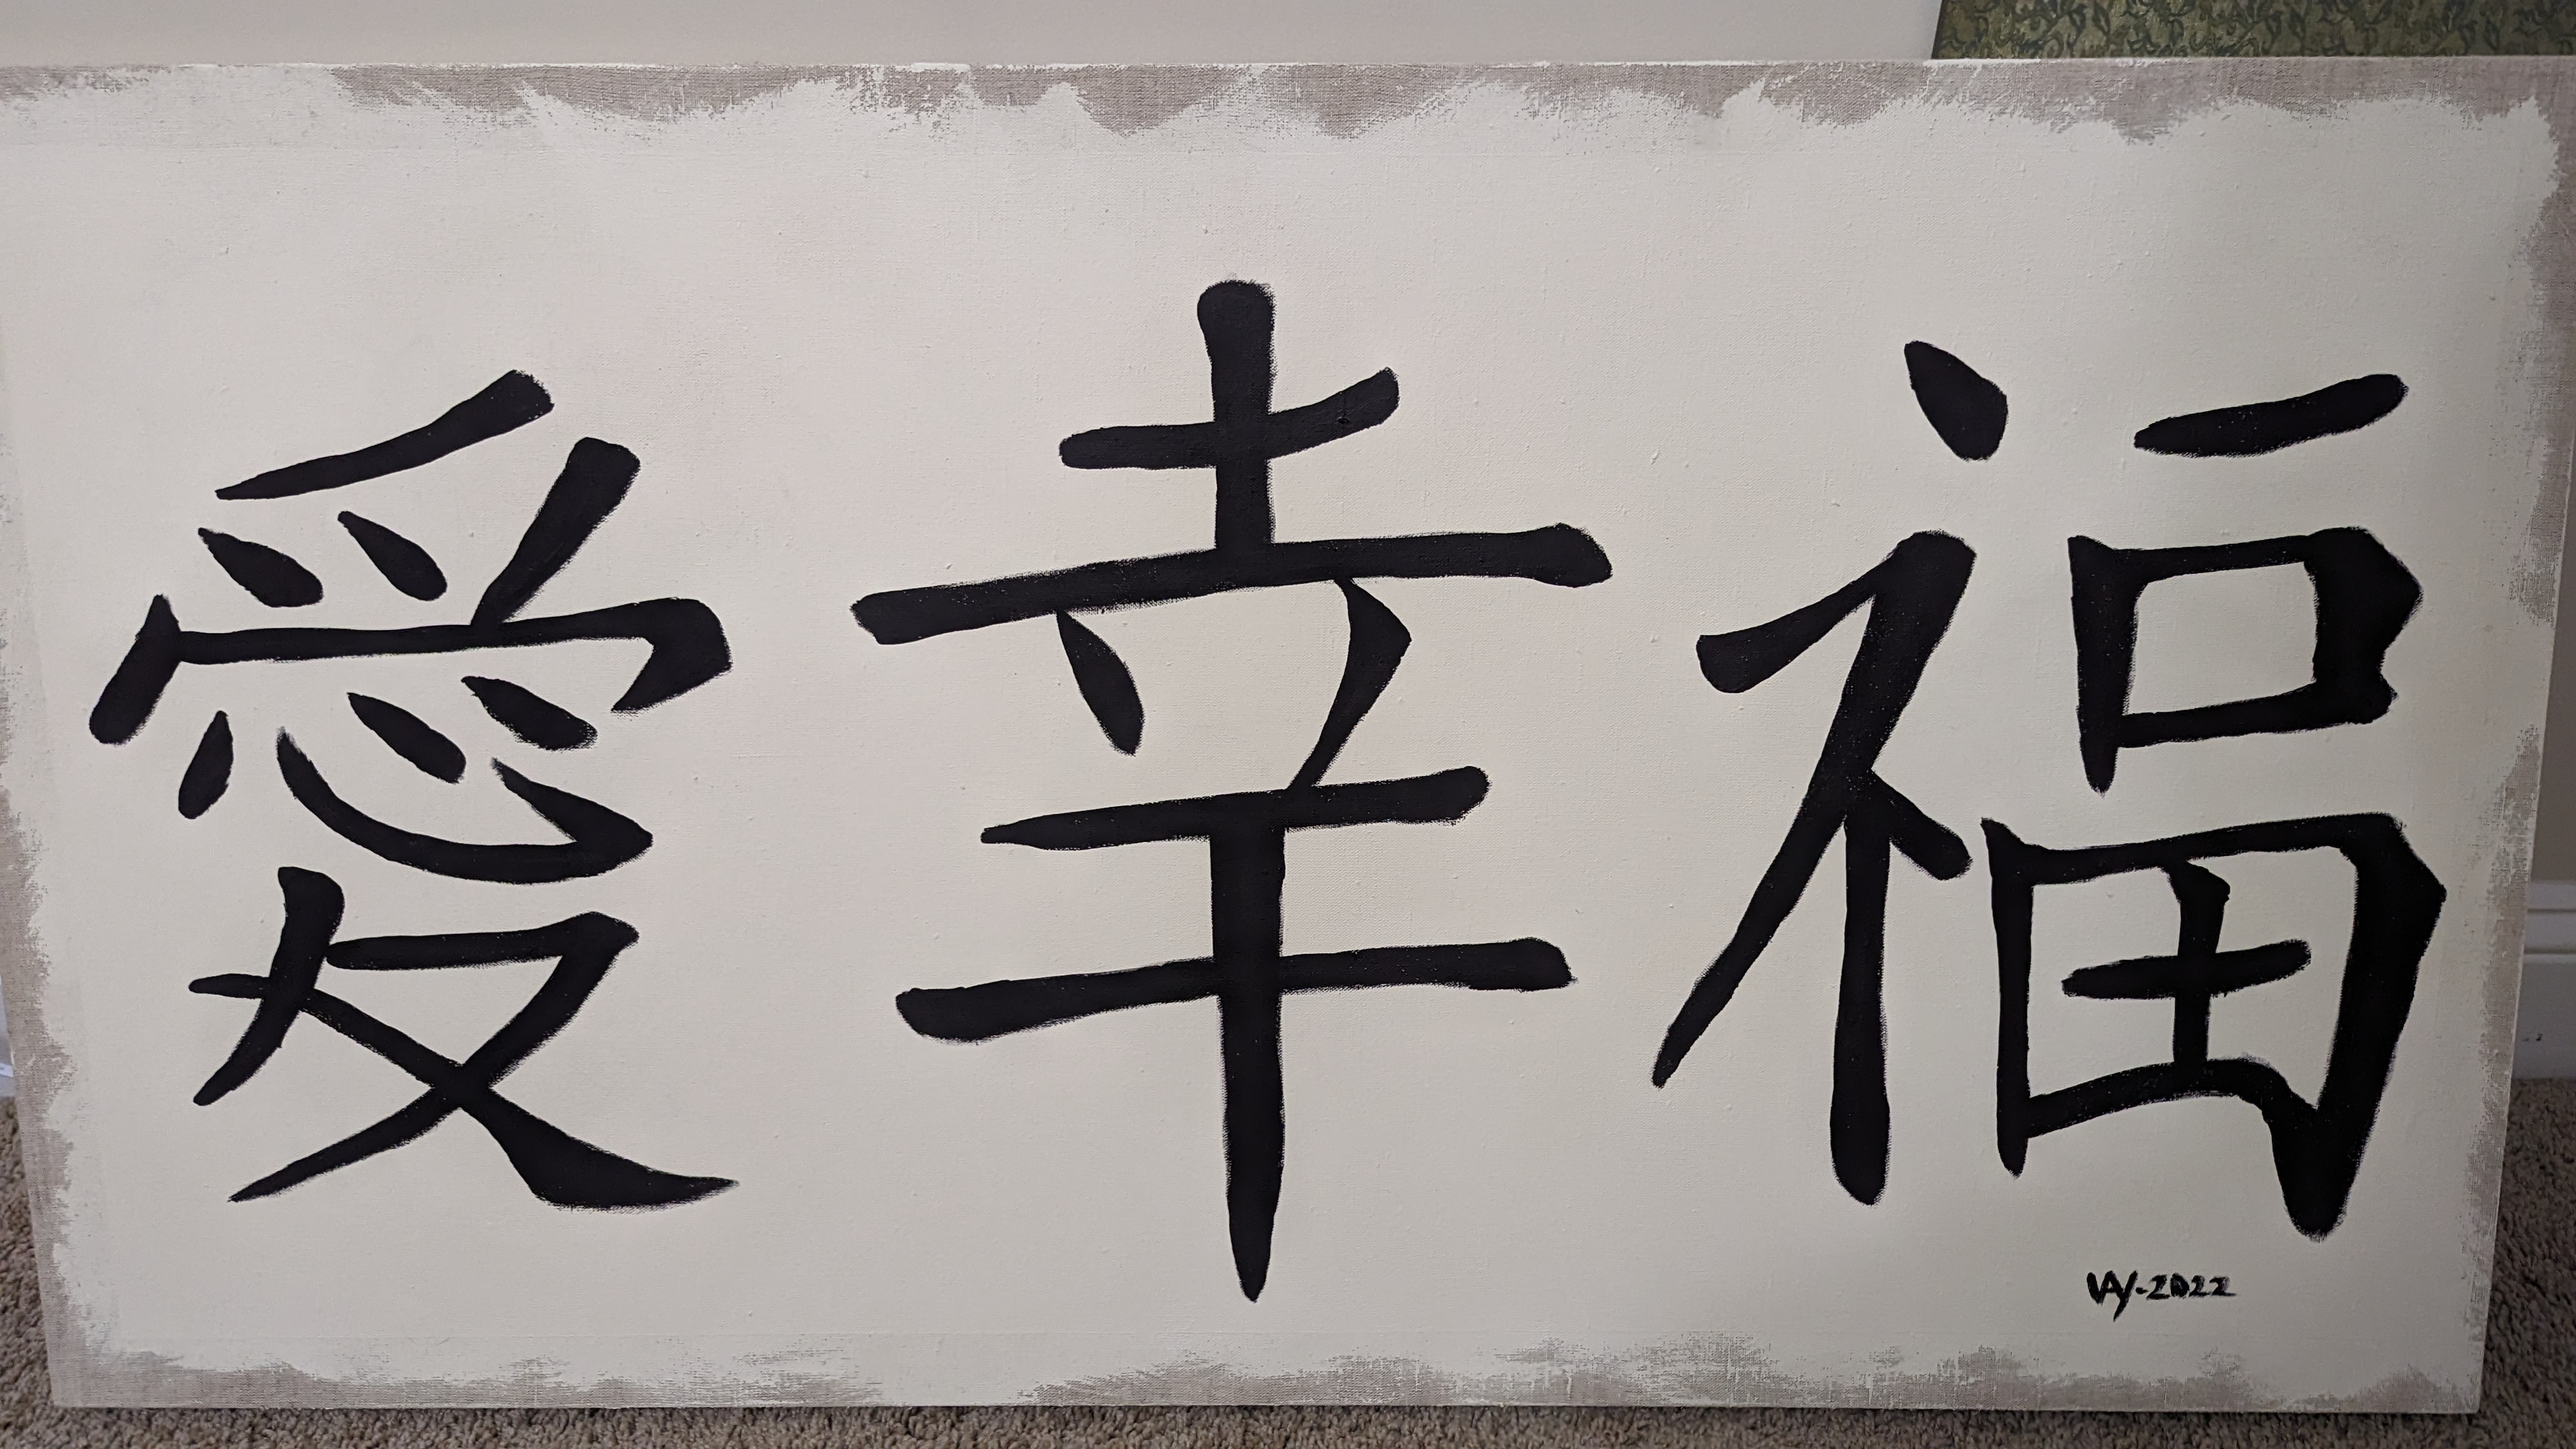 愛幸福
VAY-2022